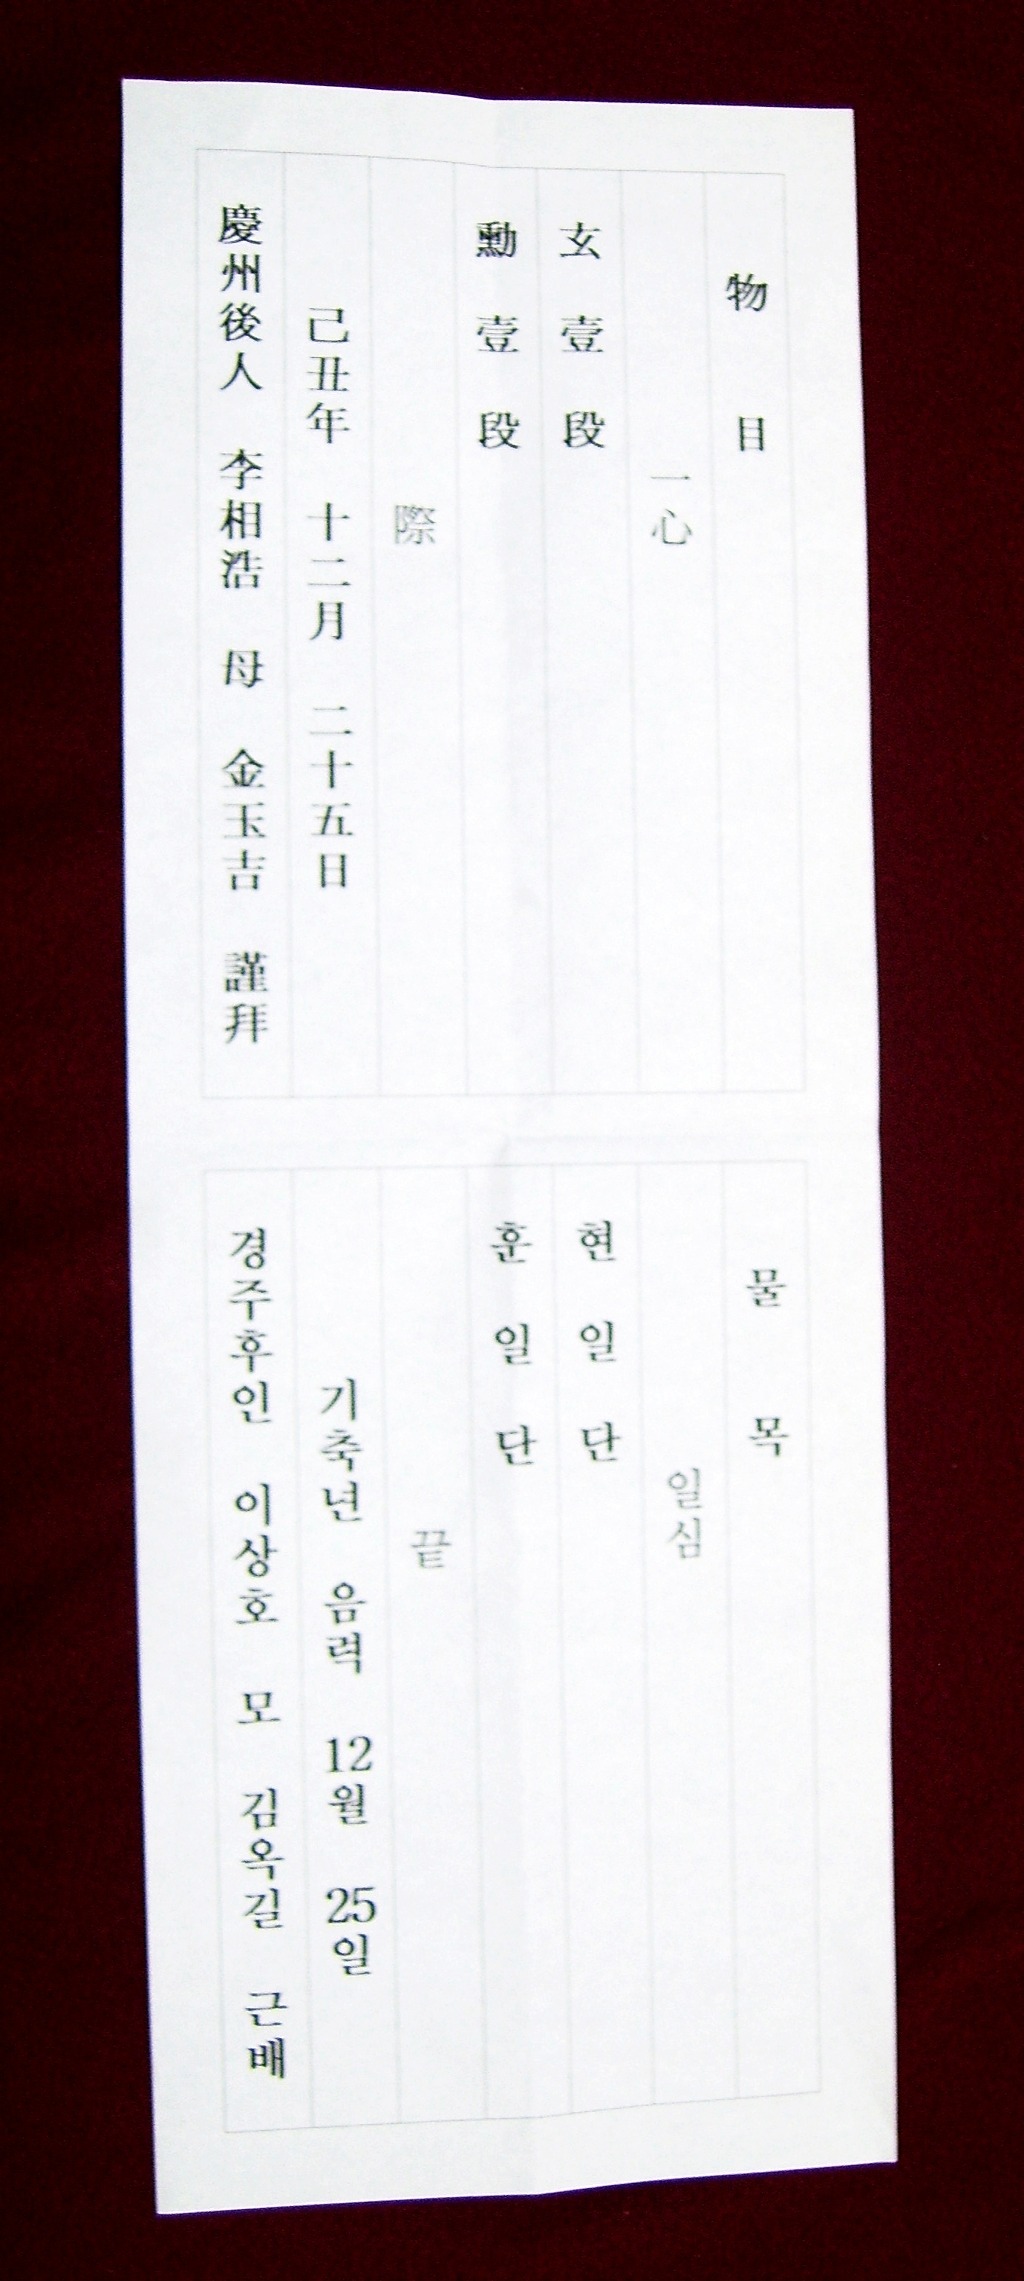 物 目
一心
玄 壹 段
勳 壹 段
際
己丑年 十二月 二十五日
慶州後人 李相浩 母 金玉吉 謹拜
물 목
일심
현 일 단
훈 일 단
끝
기축년 음력 12월 25일
경주후인 이상호 모 김옥길 근배